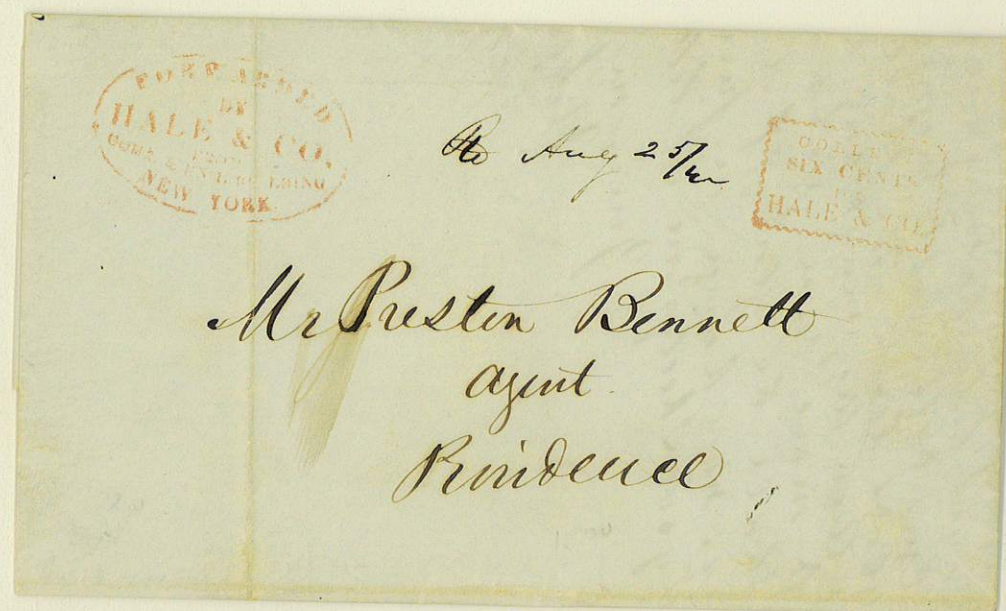 FORWARDED
BY
HALE & CO.
FROM
NEW YORK
Aug 25/44
COLLECT
SIX CENTS
HALE & CO.
Mr Preston Bennett
Agent
Providence